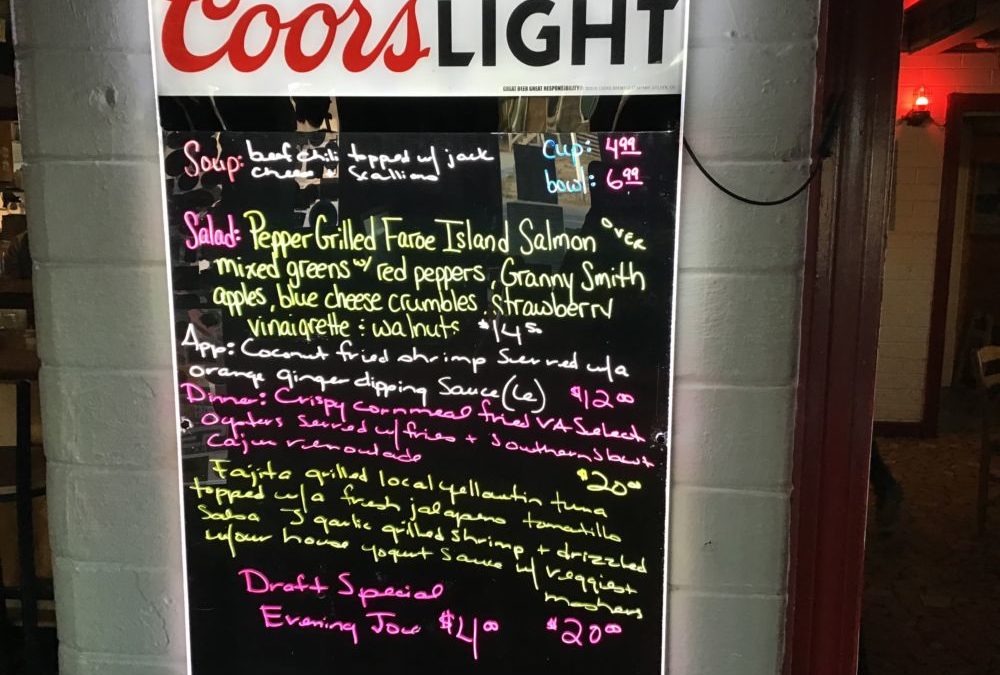 Coors LIGHT
GREAT BEER GREAT RESPONSIBILITY
Soup: beef chili topped w/ jack
cheese + scallions
Cup: 4.99
bowl: 6.99
Salad: Pepper Grilled Faroe Island Salmon OVER
mixed greens w/ red peppers, Granny Smith
apples, blue cheese crumbles, strawberry
vinaigrette & walnuts $14.50
App: Coconut fried shrimp served w/a
orange ginger dipping sauce (6) $12.00
Dinner: Crispy cornmeal fried VA Select
oysters served w/ fries + Southern slaw +
Cajun remoulade $20.00
Fajita grilled local yellowfin tuna
topped w/a fresh jalapeno tomatillo
Salsa 3 garlic grilled shrimp + drizzled
w/our house yogurt sauce w/ veggies +
mashers
Draft Special
Evening Joe $4.00 $20.00